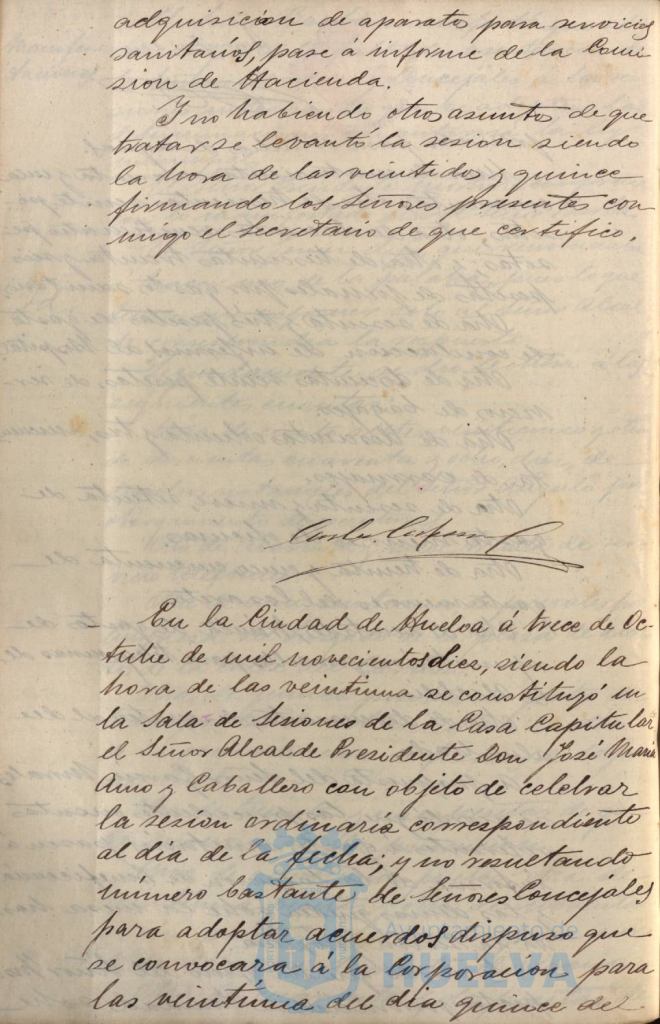 adquisición de aparatos para servicios
sanitarios, pase á informe de la Comi
sion de Hacienda.
Y no habiendo otros asuntos de que
tratar se levantó la sesion siendo
la hora de las veintidos y quince
firmando los Señores presentes con
migo el Secretario de que certifico.
En la Ciudad de Huelva á trece de Oc-
tubre de mil novecientos diez, siendo la
hora de las veintiuna se constituyó en
la Sala de Sesiones de la Casa Capitular
el Señor Alcalde Presidente Don José Maria
Amo y Caballero con objeto de celebrar
la sesion ordinaria correspondiente
al dia de la fecha; y no resultando
número bastante de Señores Concejales
para adoptar acuerdos dispuso que
se convocara á la Corporacion para
las veintiuna del dia quince de
HUELVA